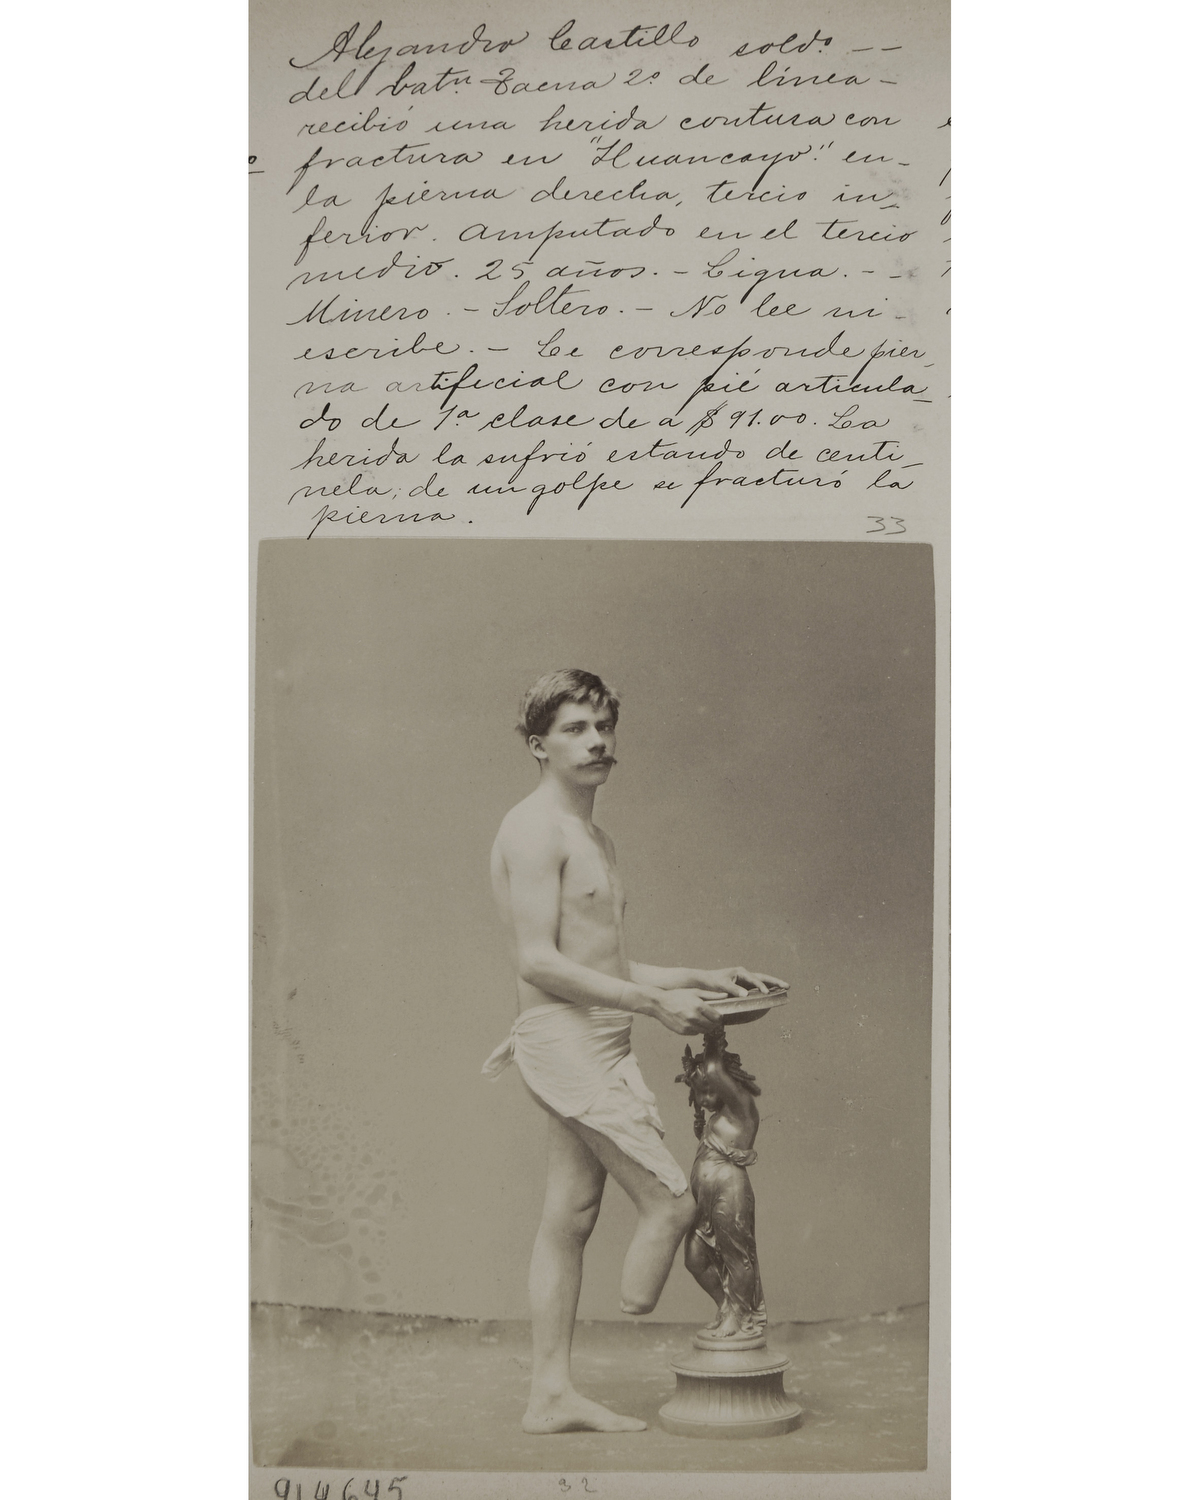 Alejandro Castillo sold.o --
del bat.n Tacna 2.o de línea -
recibió una herida contusa con
fractura en "Huancayo." en-
la pierna derecha, tercio in_
ferior. Amputado en el tercio
medio. 25 años. - Ligua. - -
Minero. - Soltero. - No lee ni -
escribe. - Le corresponde pier_
na artificial con pié articula_
do de 1.a clase de a $ 91.00. La
herida la sufrió estando de centi_
nela; de un golpe se fracturó la
pierna.
33
914645
32